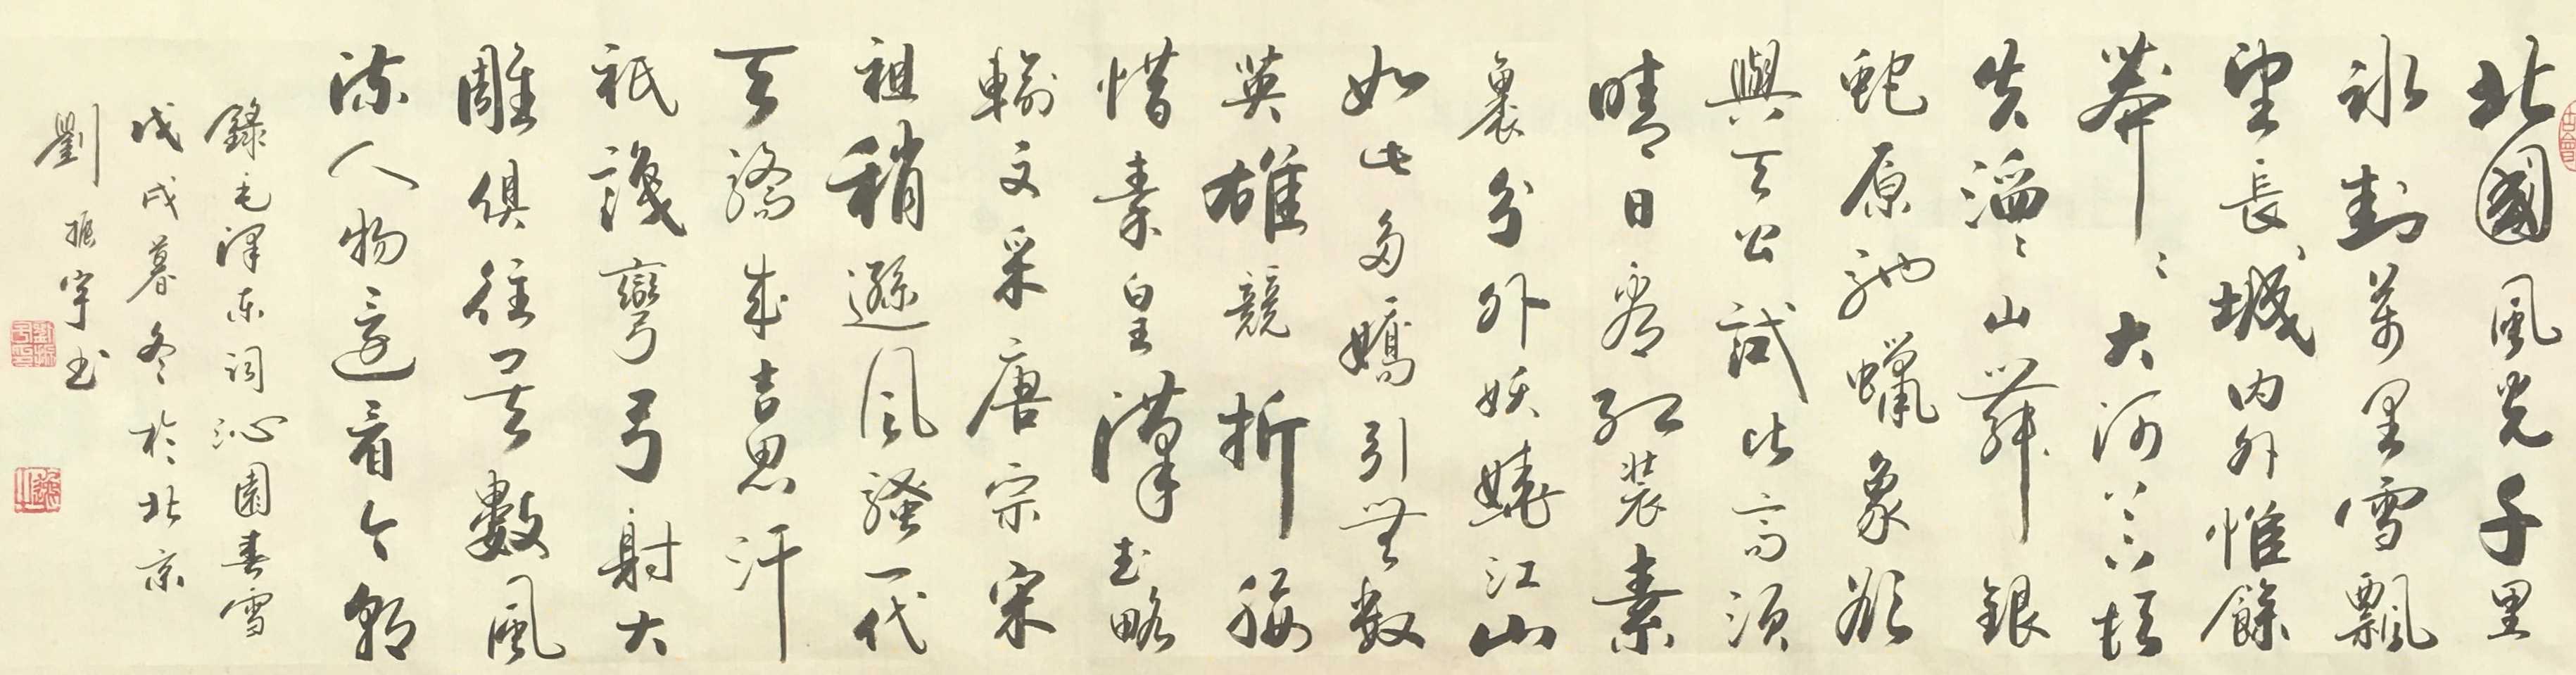 北國風光千里
冰封萬里雪飄
望長城內外惟餘
莽〻大河上下頓
失滔〻山舞銀
蛇原馳蠟象欲
與天公試比高須
晴日看紅裝素
裹分外妖嬈江山
如此多嬌引無數
英雄競折腰
惜秦皇漢武略
輸文采唐宗宋
祖稍遜風騷一代
天驕成吉思汗
祇識彎弓射大
雕俱往矣數風
流人物還看今朝
錄毛澤東詞沁園春雪
戊戌暮冬於北京
劉振宇書